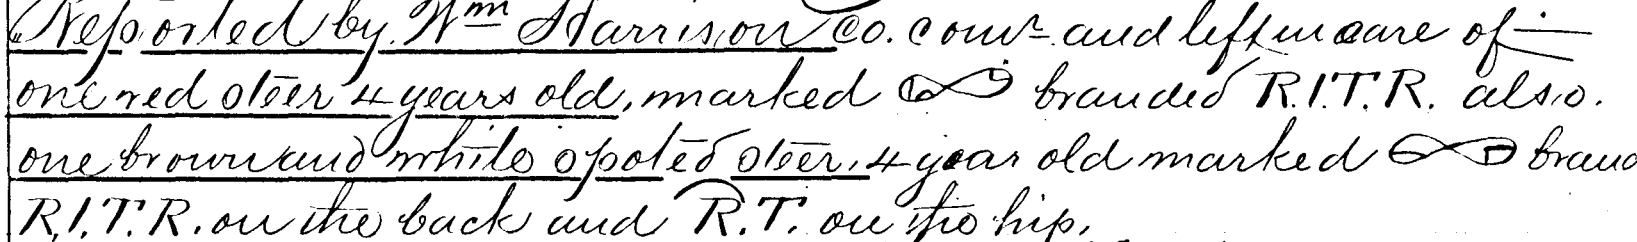 Reported by Wm Harrison Co. Comr. and left in care of
one red steer 4 years old, marked branded R.I.T.R. also.
one brown and white spoted steer, 4 year old marked brand
R.I.T.R. on the back and R.T. on the hip.